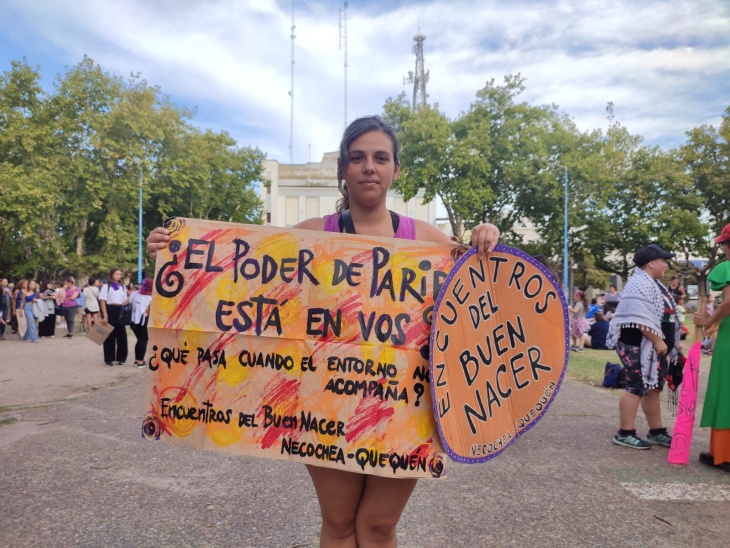 ¿EL PODER DE PARIR
ESTÁ EN VOS?
¿QUÉ PASA CUANDO EL ENTORNO NO
ACOMPAÑA?
Encuentros del Buen Nacer
NECOCHEA-QUEQUÉN
ENCUENTROS
DEL
BUEN
NACER
NECOCHEA/QUEQUÉN